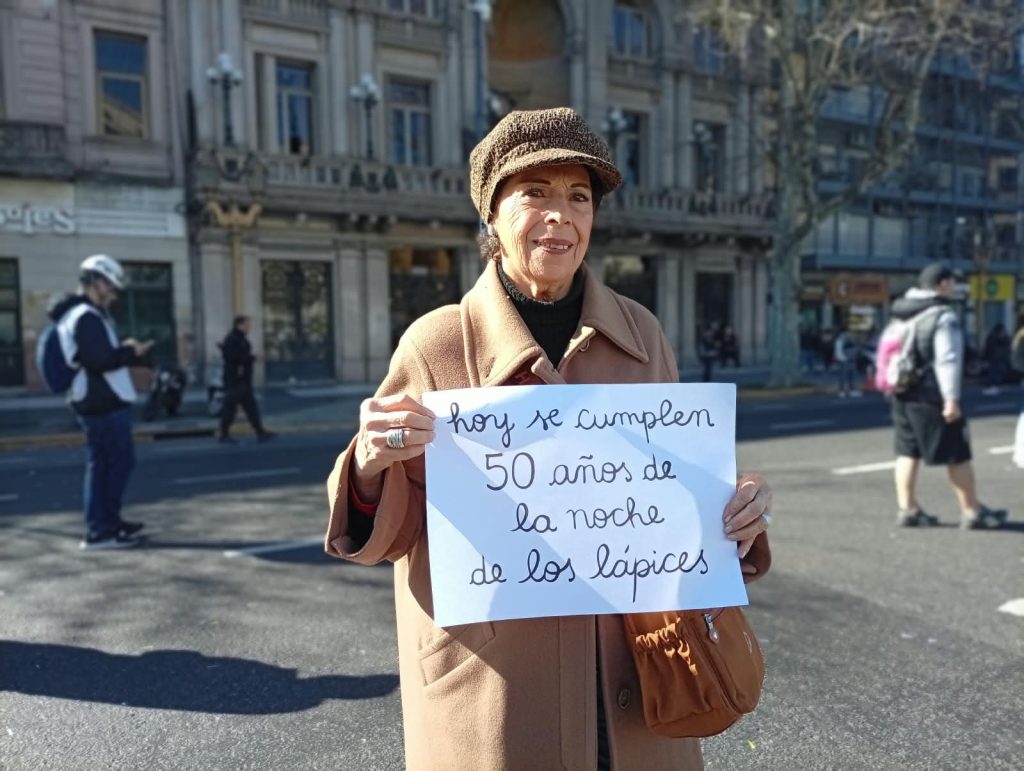 hoy se cumplen
50 años de
la noche
de los lápices